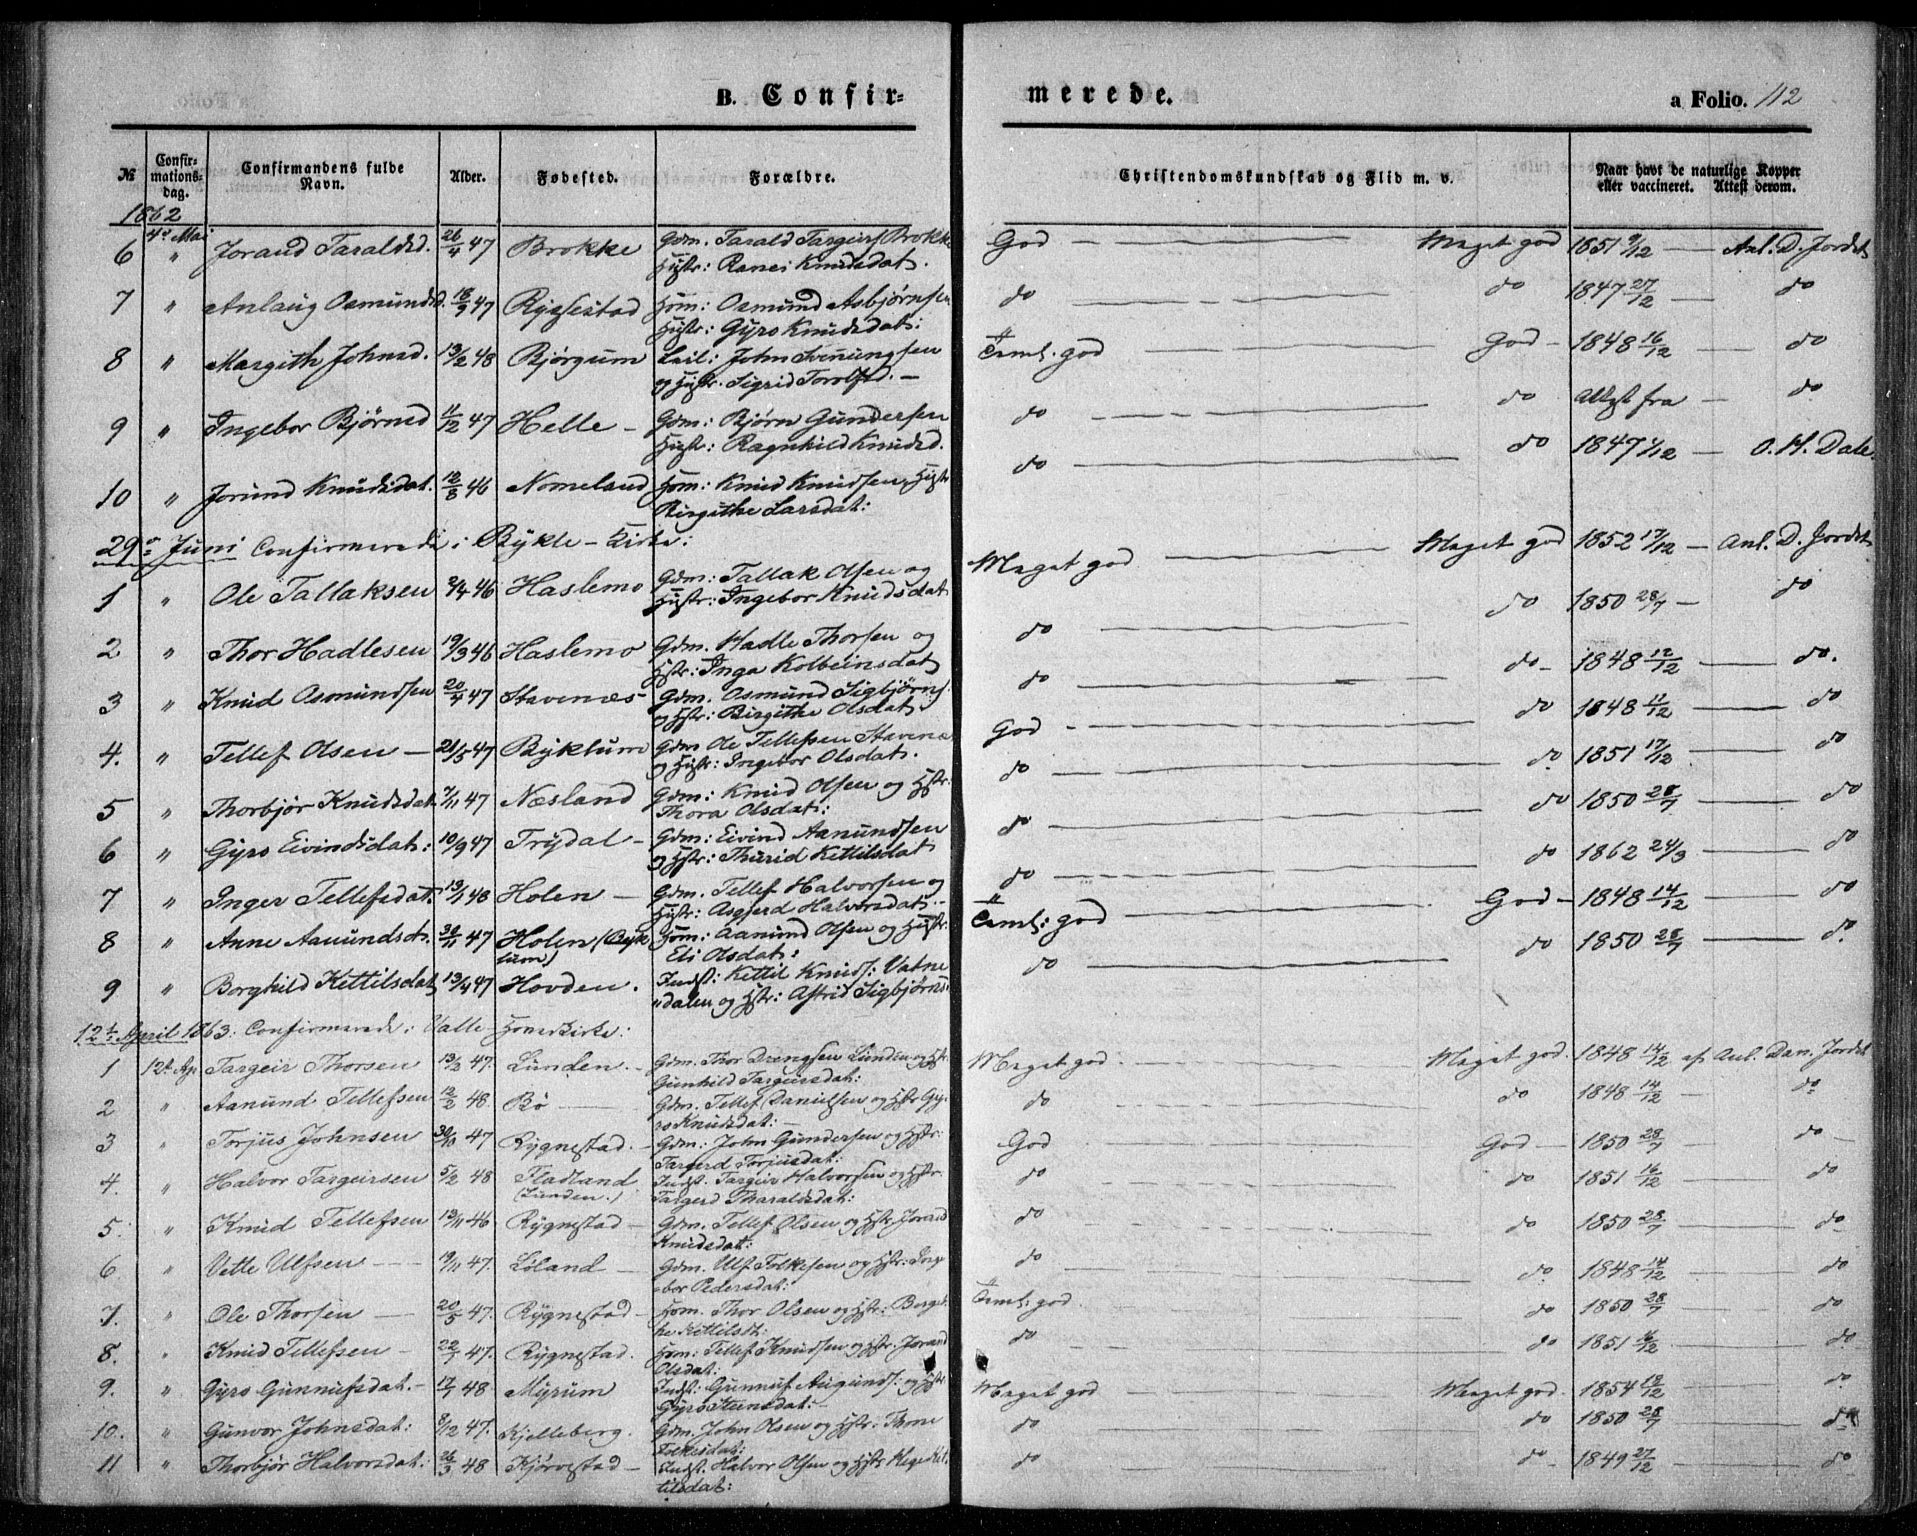 B. Confir-
merede.
a Folio. 112
№
Confir-
mations-
dag.
Confirmandens fulde
Navn.
Alder.
Fødested.
Forældre.
Christendomskundskab og Flid m. v.
Naar havt de naturlige Kopper
eller vaccineret. Attest derom.
1862
4de Mai
6 " Jorand Taraldsd. 26/4 47 Brokke Gdm. Tarald Targeirs Brokke God — Maget god 1851 9/12 — Anl. D. Jordet
Hustr: Ranei Knudsdat.
7 " Anlaug Osmundsd. 18/9 47 Rygestad Hom: Osmund Asbjørnsen do — do 1847 27/12 — do
Hustr: Gyro Knudsdat:
8 " Margith Johnsd. 13/2 48 Bjørgum Leil: John Svenungsen Teml. god — God — 1848 16/12 — do
og Hustr. Sigrid Torolfsd. —
9 " Ingebor Bjørnsd 11/12 47 Helle — Gdm: Bjørn Gundersen do — do Attest fra — do
Hustr: Ragnhild Knudsd.
10 " Jorund Knudsdat. 12/8 46 Nomeland Hom: Knud Knudsen, Hustr do — do 1847 1/12 — O. H. Dale.
Birgithe Larsdat:
29de Juni Confirmerede i Bykle-Kirke:
1 " Ole Tallaksen 2/4 46 Haslemo Gdm: Tallak Olsen og Maget god — Maget god 1852 17/12 — Anl. D. Jordet
Hustr: Ingebor Knudsdat
2 " Thor Hadlesen 19/3 46 Haslemo Gdm. Hadle Thorsen og do — do 1850 28/7 — do
Hstr: Inga Kolbeinsdat
3 " Knud Osmundsen 20/4 47 Stavenes — Gdm. Osmund Sigbjørns. do — do — 1848 12/12 — do.
og Hstr: Birgithe Olsdat.
4. " Tellef Olsen — 21/5 47 Byklum Gdm Ole Tellefsen Stavenæ God — do 1848 11/12 — do
og Hustr: Ingebor Olsdat.
5 " Thorbjør Knudsdat 7/11 47 Næsland Gdm: Knud Olsen og Hstr: do — do. 1851 17/12 — do
Thora Olsdat:
6 " Gyro Eivindsdat: 10/9 47 Trydal — Gdm: Eivind Aanundsen do — do 1850 28/7 — do
og Hstr: Thurid Kettilsdat
7 " Inger Tellefsdat. 13/1 48 Holen — Gdm. Tellef Halvorsen og do — do 1862 24/3 — do
Hustr: Asgjerd Halvorsdat. —
8 " Anne Aanundsdt. 30/11 47 Holen (Byk Hom: Aanund Olsen og Hustr. Teml: god — God — 1848 14/12 — do
lum) Eli Olsdat:
9 " Borghild Kettilsdat 13/4 47 Hovden. Indst: Kettil Knuds: Vatne do — do 1850 28/7 — do
dalen og Hstr: Astrid Sigbjørns
12t April 1863. Confirmerede i Valle Hoved Kirke:
1 12t Ap. Targeir Thorsen 13/2 47. Lunden. — Gdm. Thor Drengsen Lunden og Hstr Meget god. — Maget god. 1848 14/12 af Anl. Dan. Jordet
Gunhild Targeirsdat:
2 " Aanund Tellefsen 12/2 48. Bø — Gdm. Tellef Danielsen og Hstr Gy- do — do 1848 14/12 — do
ro Knudsdat: —
3 " Torjus Johnsen 30/10 47 Rygnestad. Gdm: John Gundersen og Hstr: God — God — 1850 28/7 — do —
Targerd Torjusdat:
4. " Halvor Targeirsen 5/2 48 Fladland Indst. Targeir Halvorsen og Hstr. do — do 1851 16/12 — do
(Lunden.) Targerd Tharaldsdat:
5. " Knud Tellefsen 13/11 46 Rygnestad — Gdm. Tellef Olsen og Hstr. Jorand do — do 1850 28/7 — do
Knudsdat:
6 " Vette Ulfsen — 19/11 47. Løland — Gdm. Ulf Folkesen og Hstr: Inge do — do. 1848 14/12 — do
bor Pedersdat:
7. " Ole Thorsen — 20/5 47. Rygnestad — Hom. Thor Olsen og Hstr: Berget Teml: god. — do 1850 28/7 — do
he Kettilsdt:
8. " Knud Tellefsen — 22/7 47. Rygnestad. Hom: Tellef Knudsen og Hstr. Jorand do — do 1851 16/12 — do.
Olsdat:
9. " Gyro Gunnufsdat. — 17/7 48 Myrum Indst: Gunnuf Augunds: og Hstr Meget god — Maaget god. 1854 18/12 — do
Gyro Steinsdat: —
10. " Gunvor Johnsdat: 8/12 47. Kjelleberg. Gdm. John Olsen og Hstr: Thone do — do — 1850 28/7 — do
Folkesdat:
11 " Thorbjør Halvorsdat: 26/3 48 Kjørvestad — Indst. Halvor Olsen og Hstr Kket- do — do — 1849 27/12 — do
tilsdat: